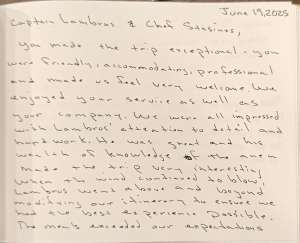 June 19, 2025
Captain Lambros & Chef Stasinos,
You made the trip exceptional - you
were friendly, accommodating, professional
and made us feel very welcome. We
enjoyed your service as well as
your company. We were all impressed
with Lambros' attention to detail and
hard work. He was great and his
wealth of knowledge of the area
made the trip very interesting
when the wind continued to blow,
Lambros went above and beyond
modifying our itinerary to ensure we
had the best experience possible.
The meals exceeded our expectations